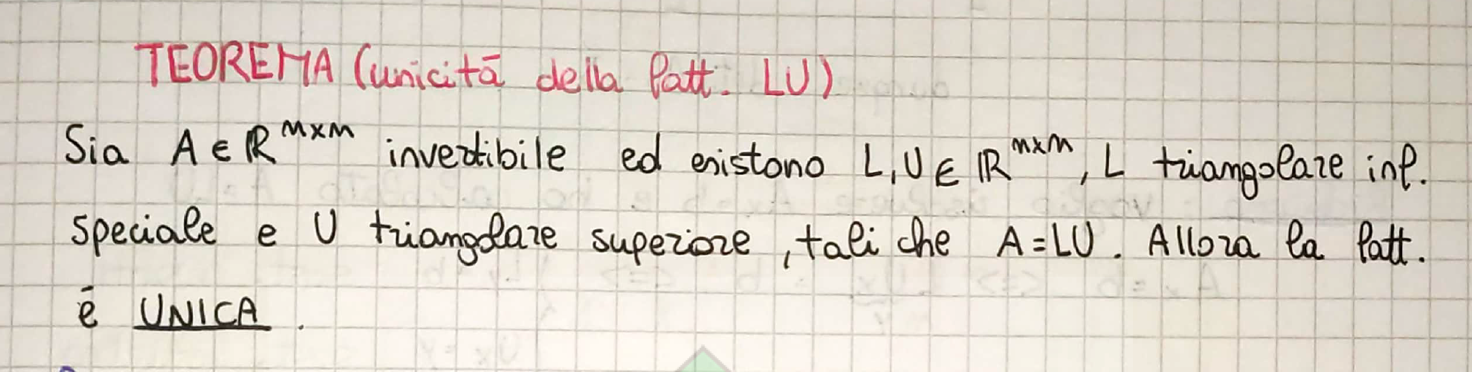 TEOREMA (unicità della fatt. LU)
Sia A ∈ ℝ^{n×n} invertibile ed esistono L, U ∈ ℝ^{n×n}, L triangolare inf.
speciale e U triangolare superiore, tali che A = LU. Allora la fatt.
è UNICA.